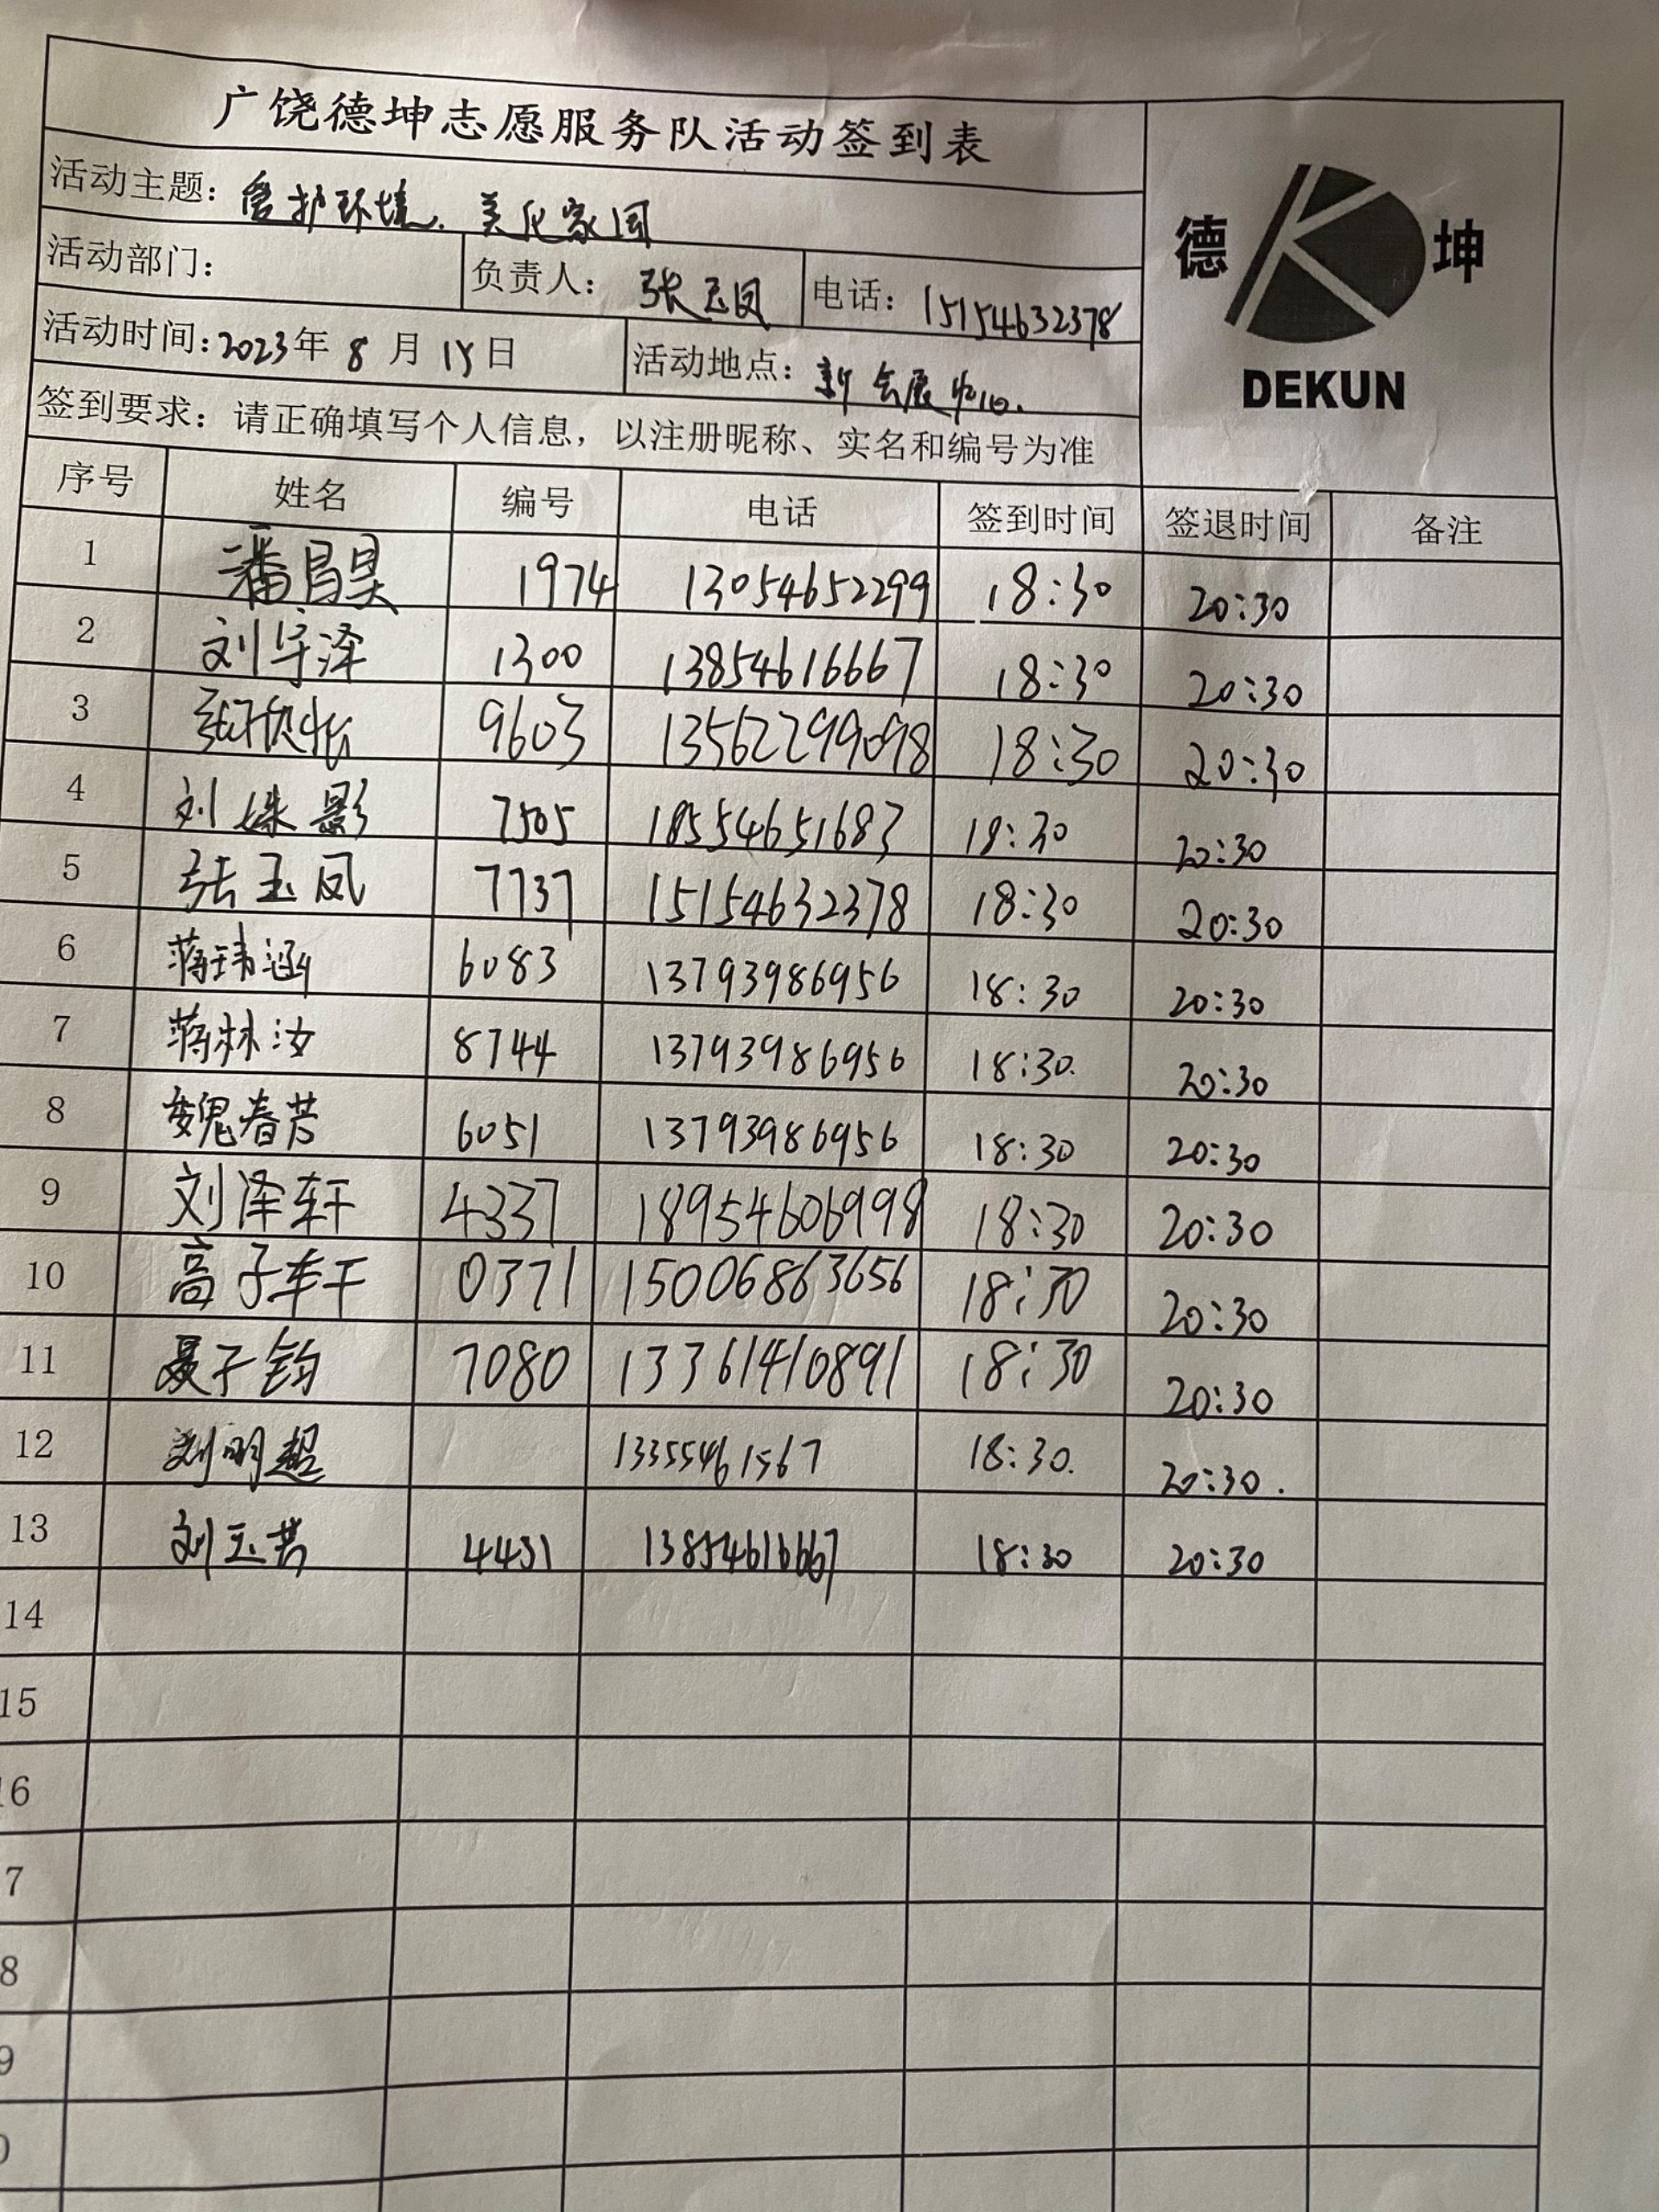 广饶德坤志愿服务队活动签到表
德 坤
DEKUN
活动主题：爱护环境、美化家园
活动部门： 负责人：张玉凤 电话：15154632378
活动时间：2023年8月18日 活动地点：新会展中心.
签到要求：请正确填写个人信息，以注册昵称、实名和编号为准
序号 姓名 编号 电话 签到时间 签退时间 备注
1 潘昌昊 1974 13054652299 18:30 20:30
2 刘宇泽 1300 13854616667 18:30 20:30
3 9603 13562299098 18:30 20:30
4 刘姝影 7505 18554651683 18:30 20:30
5 张玉凤 7737 15154632378 18:30 20:30
6 蒋玮涵 6083 13793986956 18:30 20:30
7 蒋林汝 8744 13793986956 18:30. 20:30
8 魏春芳 6051 13793986956 18:30 20:30
9 刘泽轩 4337 18954606998 18:30 20:30
10 高子轩 0371 15006863656 18:30 20:30
11 聂子钧 7080 13361410891 18:30 20:30
12 刘明超 13355461567 18:30. 20:30.
13 刘玉芳 4431 13854616667 18:30 20:30
14
15
16
7
8
9
0